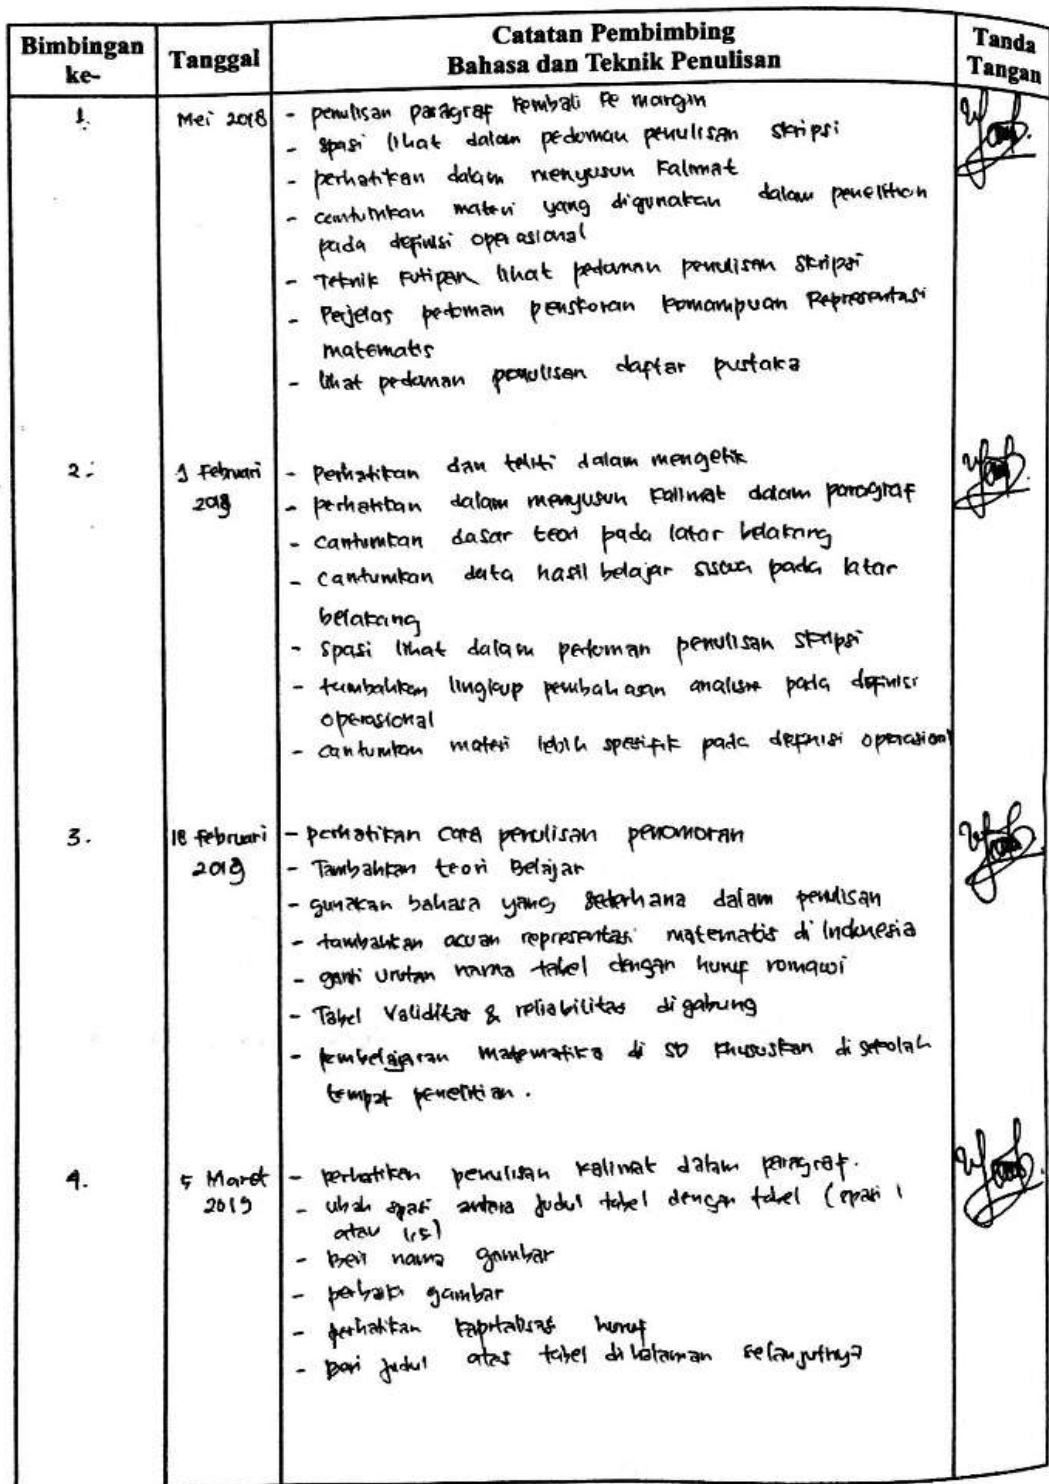 Bimbingan ke-
Tanggal
Catatan Pembimbing
Bahasa dan Teknik Penulisan
Tanda Tangan
1.
Mei 2018
- penulisan paragraf kembali ke margin
- spasi lihat dalam pedoman penulisan skripsi
- perhatikan dalam menyusun kalimat
- cantumkan materi yang digunakan dalam penelitian
pada definisi operasional
- Teknik kutipan lihat pedoman penulisan skripsi
- Perjelas pedoman penskoran kemampuan Representasi
matematis
- lihat pedoman penulisan daftar pustaka
2.
Februari
- Perhatikan dan teliti dalam mengetik
- perhatikan dalam menyusun kalimat dalam paragraf
- cantumkan dasar teori pada latar belakang
- cantumkan data hasil belajar siswa pada latar
belakang
- spasi lihat dalam pedoman penulisan skripsi
- tambahkan lingkup pembahasan analisis pada definisi
operasional
- cantumkan materi lebih spesifik pada definisi operasional
3.
18 februari
2019
- perhatikan cara penulisan penomoran
- Tambahkan teori Belajar
- gunakan bahasa yang sederhana dalam penulisan
- tambahkan acuan representasi matematis di Indonesia
- ganti urutan nama tabel dengan huruf romawi
- Tabel Validitas & reliabilitas digabung
- pembelajaran matematika di SD khususkan di sekolah
tempat penelitian.
4.
5 Maret
2019
- perhatikan penulisan kalimat dalam paragraf.
- ubah spasi antara judul tabel dengan tabel (spasi 1
atau 1,5)
- Beri nama gambar
- perbaiki gambar
- perhatikan kapitalisasi huruf
- Beri judul atas tabel di halaman selanjutnya